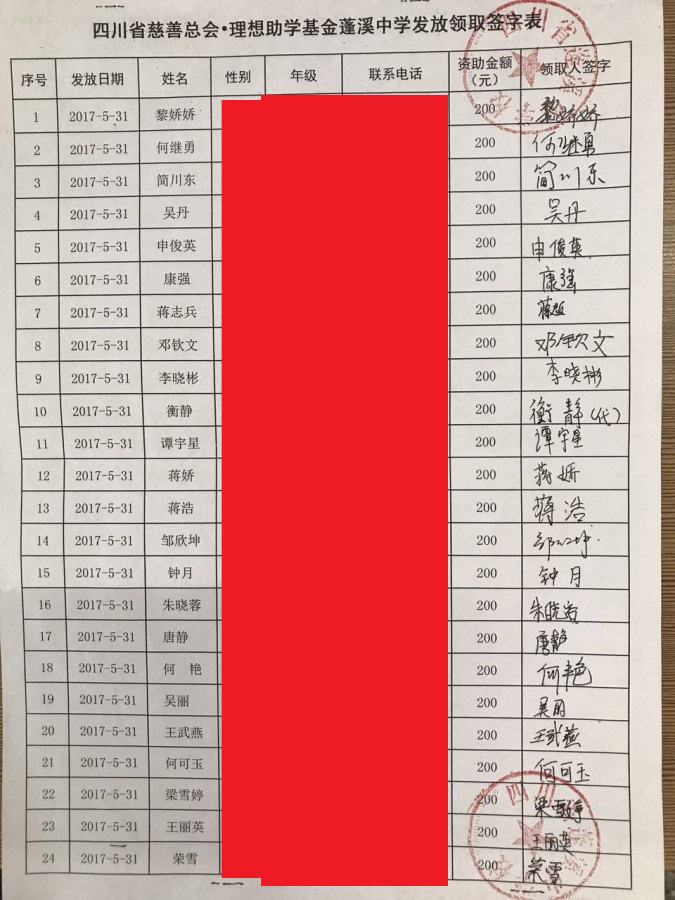 四川省慈善总会·理想助学基金蓬溪中学发放领取签字表
序号 发放日期 姓名 性别 年级 联系电话 资助金额(元) 领取人签字
1 2017-5-31 黎娇娇 200 黎娇娇
2 2017-5-31 何继勇 200 何继勇
3 2017-5-31 简川东 200 简川东
4 2017-5-31 吴丹 200 吴丹
5 2017-5-31 申俊英 200 申俊英
6 2017-5-31 康强 200 康强
7 2017-5-31 蒋志兵 200
8 2017-5-31 邓钦文 200 邓钦文
9 2017-5-31 李晓彬 200 李晓彬
10 2017-5-31 衡静 200 衡静(代)
11 2017-5-31 谭宇星 200 谭宇星
12 2017-5-31 蒋娇 200 蒋娇
13 2017-5-31 蒋浩 200 蒋浩
14 2017-5-31 邹欣坤 200
15 2017-5-31 钟月 200 钟月
16 2017-5-31 朱晓蓉 200
17 2017-5-31 唐静 200 唐静
18 2017-5-31 何 艳 200 何艳
19 2017-5-31 吴丽 200 吴丽
20 2017-5-31 王武燕 200 王武燕
21 2017-5-31 何可玉 200 何可玉
22 2017-5-31 梁雪婷 200 梁雪婷
23 2017-5-31 王丽英 200 王丽英
24 2017-5-31 荣雪 200 荣雪